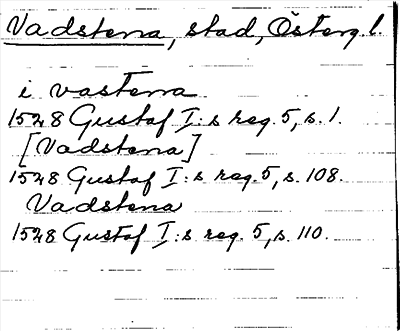 Vadstena, stad, Österg.l.
i vastena
1528 Gustaf I:s reg. 5, s. 1.
[Vadstena]
1528 Gustaf I:s reg. 5, s. 108.
Vadstena
1528 Gustaf I:s reg. 5, s. 110.